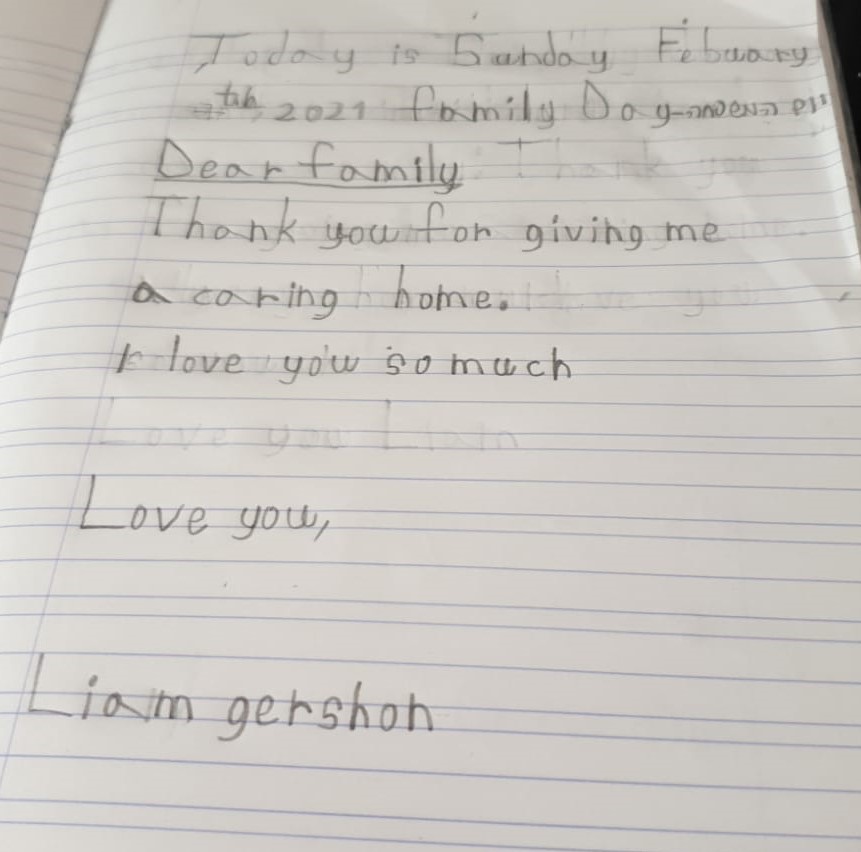 Today is Sunday Febuary
2021 family Day יום המשפחה
Dear family
Thank you for giving me
a caring home.
I love you so much
Love you Liam
Love you,
Liam gershon